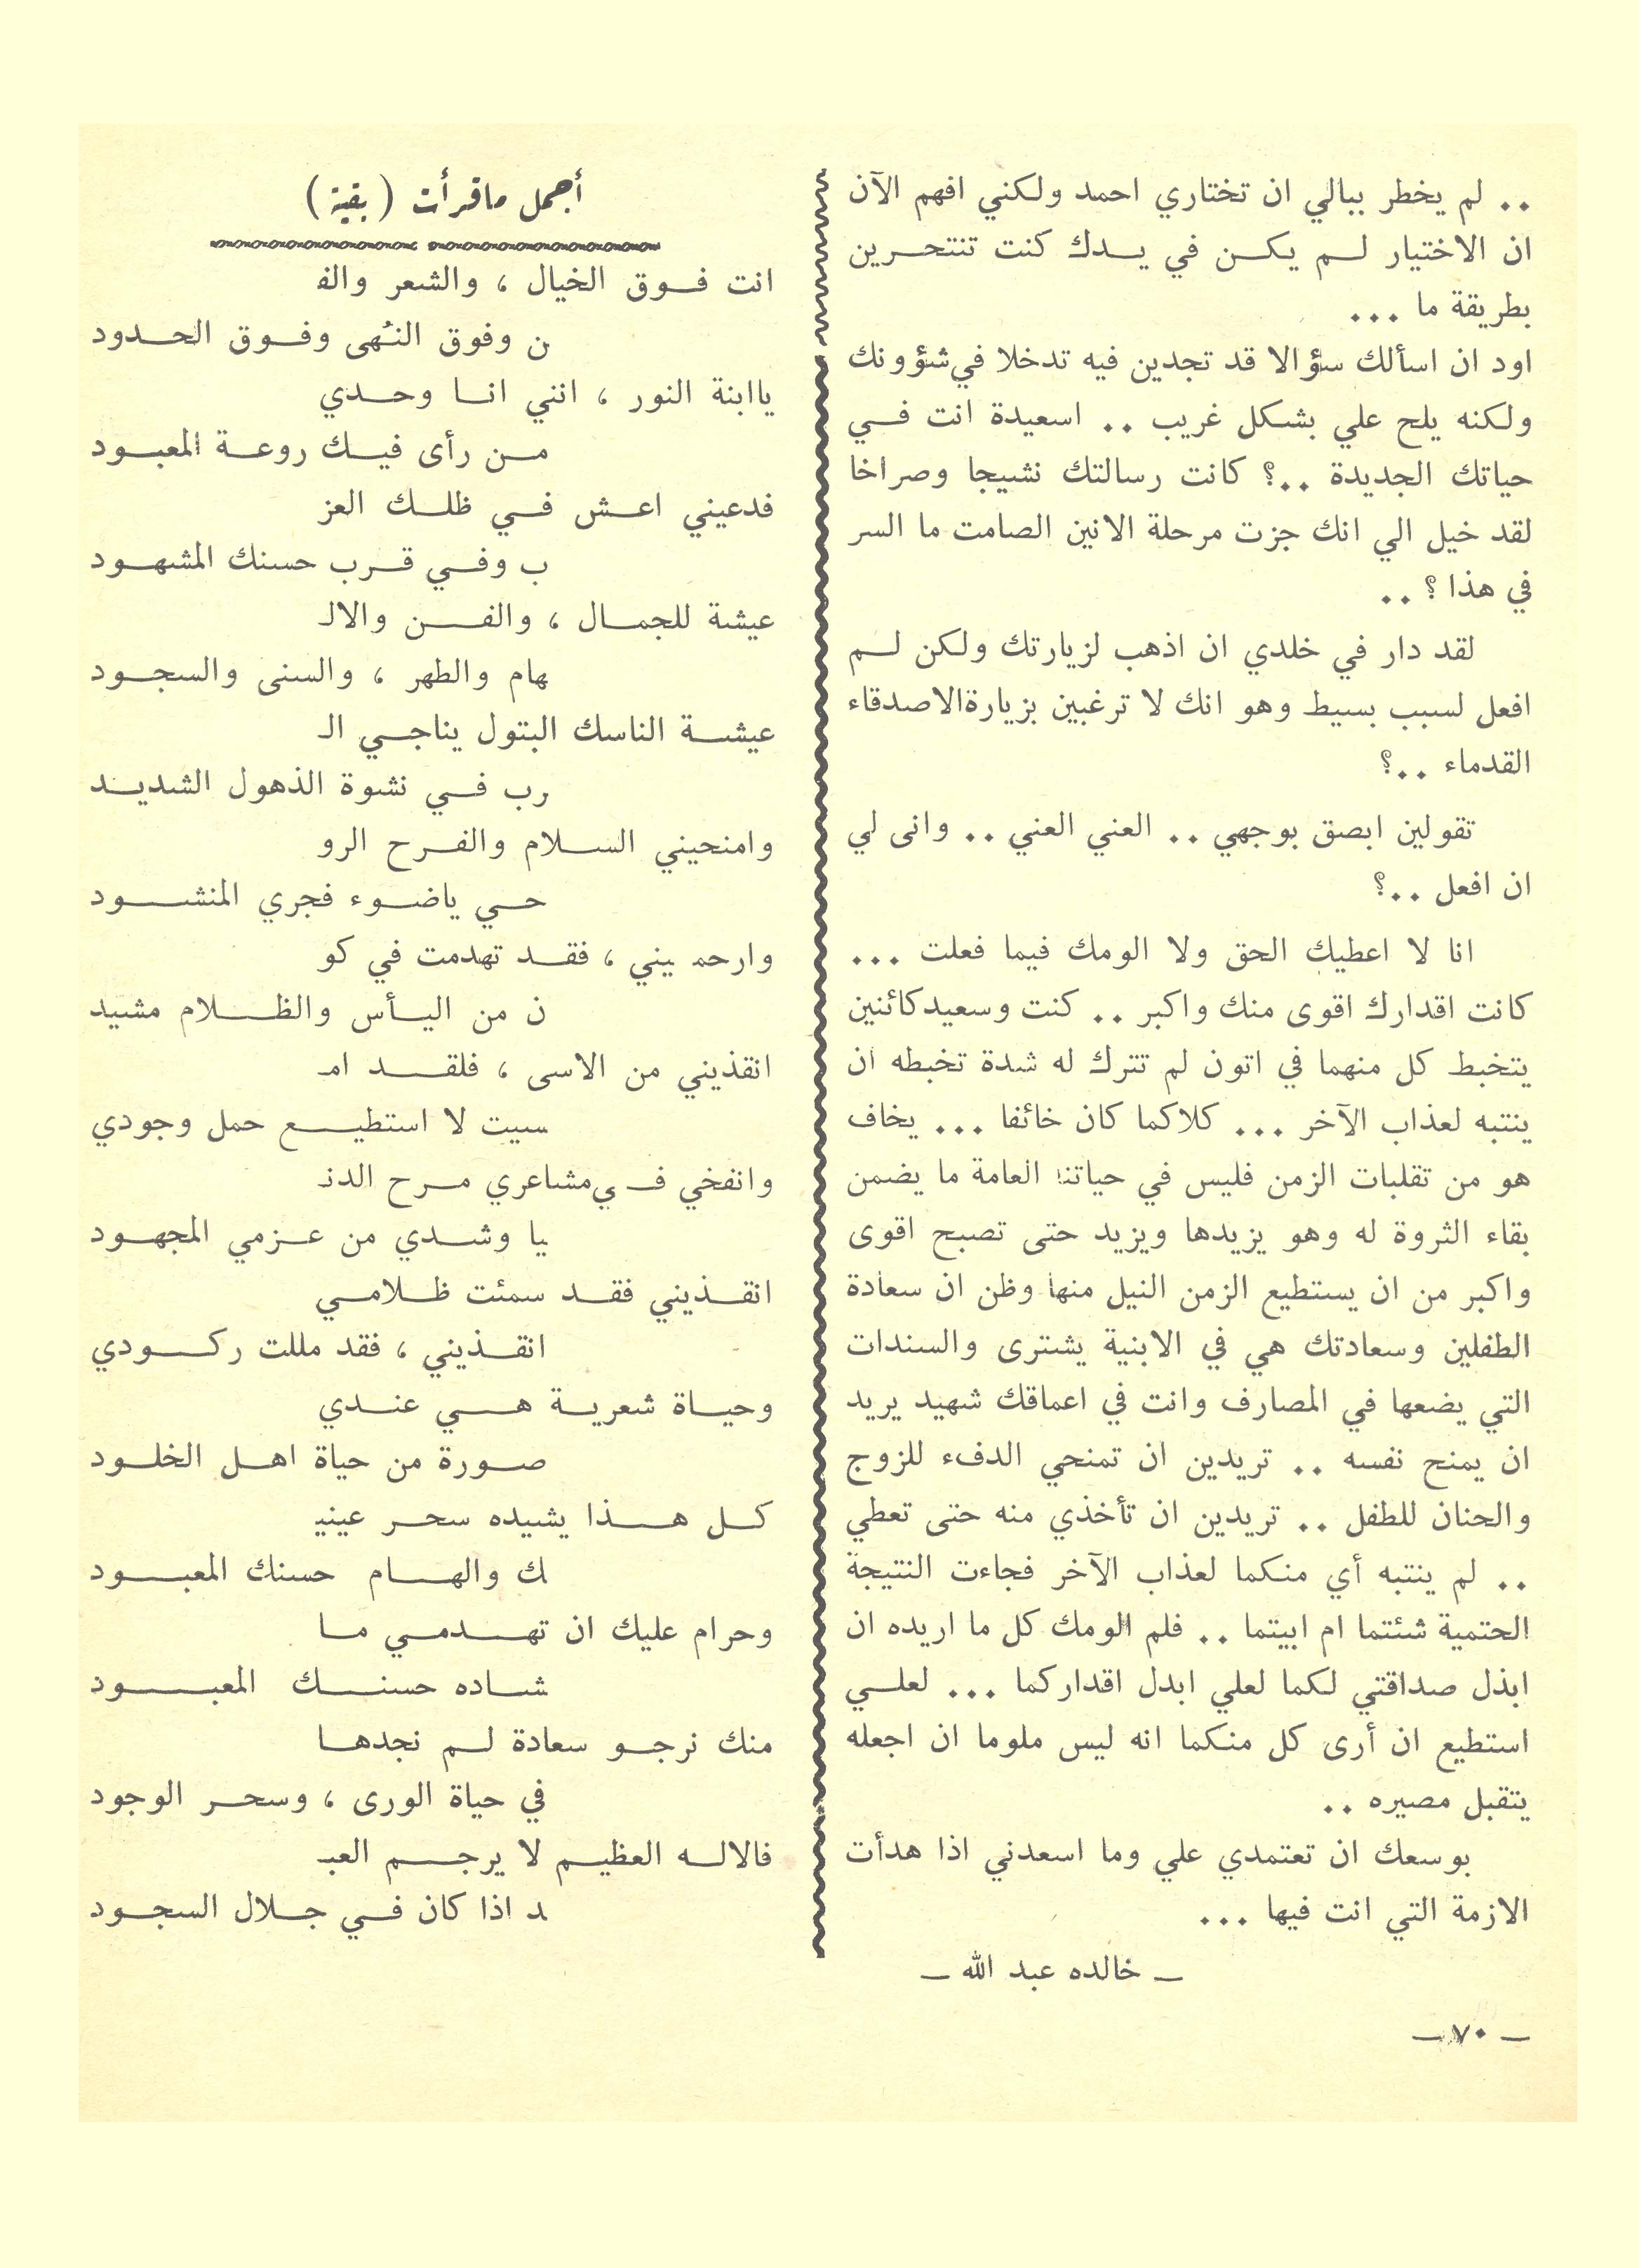 .. لم يخطر ببالي ان تختاري احمد ولكني افهم الآن
ان الاختيار لم يكن في يدك كنت تنتحرين
بطريقة ما ...
اود ان اسألك سؤالا قد تجدين فيه تدخلا في شؤونك
ولكنه يلح علي بشكل غريب .. اسعيدة انت في
حياتك الجديدة ..؟ كانت رسالتك نشيجا وصراخا
لقد خيل الي انك جزت مرحلة الانين الصامت ما السر
في هذا ؟ ..
لقد دار في خلدي ان اذهب لزيارتك ولكن لم
افعل لسبب بسيط وهو انك لا ترغبين بزيارة الاصدقاء
القدماء ..؟
تقولين ابصق بوجهي .. العني العني .. وانى لي
ان افعل ..؟
انا لا اعطيك الحق ولا الومك فيما فعلت ...
كانت اقدارك اقوى منك واكبر .. كنت وسعيد كائنين
يتخبط كل منهما في اتون لم تترك له شدة تخبطه ان
ينتبه لعذاب الآخر ... كلاكما كان خائفا ... يخاف
هو من تقلبات الزمن فليس في حياتنا العامة ما يضمن
بقاء الثروة له وهو يزيدها ويزيد حتى تصبح اقوى
واكبر من ان يستطيع الزمن النيل منها وظن ان سعادة
الطفلين وسعادتك هي في الابنية يشترى والسندات
التي يضعها في المصارف وانت في اعماقك شهيد يريد
ان يمنح نفسه .. تريدين ان تمنحي الدفء للزوج
والحنان للطفل .. تريدين ان تأخذي منه حتى تعطي
.. لم ينتبه أي منكما لعذاب الآخر فجاءت النتيجة
الحتمية شئتما ام ابيتما .. فلم الومك كل ما اريده ان
ابذل صداقتي لكما لعلي ابدل اقداركما ... لعلي
استطيع ان أرى كل منكما انه ليس ملوما ان اجعله
يتقبل مصيره ..
بوسعك ان تعتمدي علي وما اسعدني اذا هدأت
الازمة التي انت فيها ...
— خالده عبد الله —
— ٧٠ —
أجمل ما قرأت ( بقية )
انت فوق الخيال ، والشعر والف
ن وفوق النهى وفوق الحدود
يا ابنة النور ، انني انا وحدي
من رأى فيك روعة المعبود
فدعيني اعش في ظلك العز
ب وفي قرب حسنك المشهود
عيشة للجمال ، والفن والالـ
هام والطهر ، والسنى والسجود
عيشة الناسك البتول يناجي الـ
رب في نشوة الذهول الشديد
وامنحيني السلام والفرح الرو
حي ياضوء فجري المنشود
وارحميني ، فقد تهدمت في كو
ن من اليأس والظلام مشيد
انقذيني من الاسى ، فلقد امـ
سيت لا استطيع حمل وجودي
وانفخي في مشاعري مرح الدنـ
يا وشدي من عزمي المجهود
انقذيني فقد سمئت ظلامي
انقذيني ، فقد مللت ركودي
وحياة شعرية هي عندي
صورة من حياة اهل الخلود
كل هذا يشيده سحر عينيـ
ك والهام حسنك المعبود
وحرام عليك ان تهدمي ما
شاده حسنك المعبود
منك نرجو سعادة لم نجدها
في حياة الورى ، وسحر الوجود
فالاله العظيم لا يرجم العبـ
د اذا كان في جلال السجود